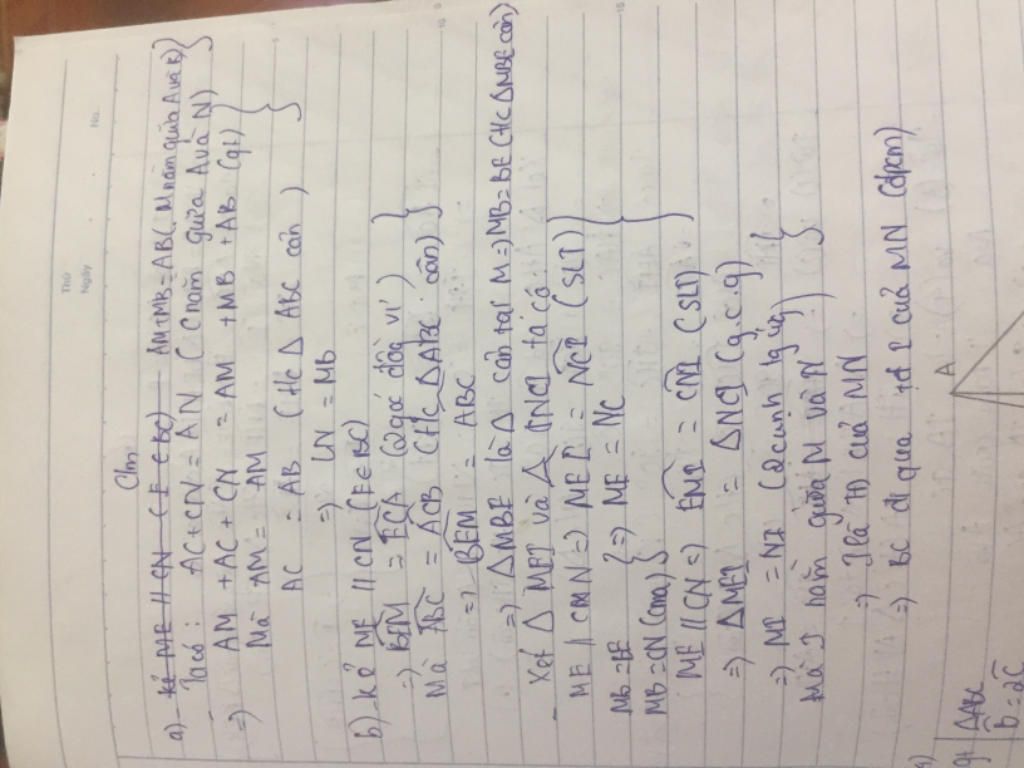 Thứ
Ngày
No.
Clm:
a) kẻ ME // CN (E ∈ BC) AM+MB=AB (M nằm giữa A và B)
Ta có: AC+CN = AN (C nằm giữa A và N)
=) AM + AC + CN = AM + MB + AB (gt)
Mà AM = AM
AC = AB (t/c Δ ABC cân)
=> CN = MB
b) kẻ ME // CN (E ∈ BC)
=) BEM = ECA (2 góc đồng vị)
Mà ABC = ACB (t/c Δ ABC cân)
=> BEM = ABC
=> Δ MBE là Δ cân tại M => MB = BE (t/c Δ MBE cân)
Xét Δ MEI và Δ NCI ta có
ME // CN => MEI = NCI (SLT)
MB = BE
=> ME = NC
MB = CN (cma)
ME // CN => EMI = CNI (SLT)
=> ΔMEI = ΔNCI (g.c.g)
=> MI = NI (2 cạnh tg ứng)
Mà I nằm giữa M và N
=> I là TĐ của MN
=> BC đi qua tđ I của MN (đpcm)
A
gt ΔABC
B = 2C